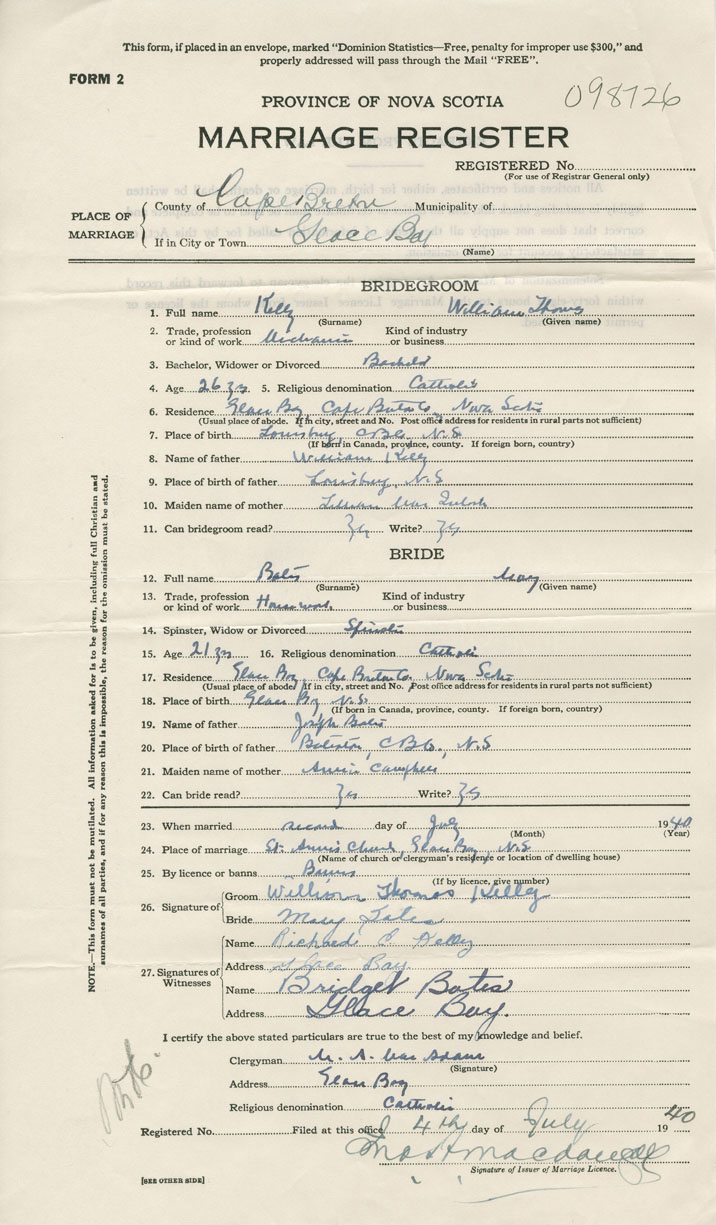 This form, if placed in an envelope, marked "Dominion Statistics—Free, penalty for improper use $300," and
properly addressed will pass through the Mail "FREE".
FORM 2
PROVINCE OF NOVA SCOTIA 098726
MARRIAGE REGISTER
REGISTERED No.
(For use of Registrar General only)
PLACE OF MARRIAGE
County of Cape Breton Municipality of
If in City or Town Glace Bay
(Name)
BRIDEGROOM
1. Full name Kelly William Thomas
(Surname) (Given name)
2. Trade, profession or kind of work Mechanic Kind of industry or business
3. Bachelor, Widower or Divorced Bachelor
4. Age 26 yrs 5. Religious denomination Catholic
6. Residence Glace Bay Cape Breton Co, Nova Scotia
(Usual place of abode. If in city, street and No. Post office address for residents in rural parts not sufficient)
7. Place of birth Louisburg, C.B. Co. N.S.
(If born in Canada, province, county. If foreign born, country)
8. Name of father William Kelly
9. Place of birth of father Louisburg, N.S
10. Maiden name of mother Lillian
11. Can bridegroom read? Yes Write? Yes
BRIDE
12. Full name Bates Mary
(Surname) (Given name)
13. Trade, profession or kind of work Housework Kind of industry or business
14. Spinster, Widow or Divorced Spinster
15. Age 21 yrs 16. Religious denomination Catholic
17. Residence Glace Bay, Cape Breton Co, Nova Scotia
(Usual place of abode. If in city, street and No. Post office address for residents in rural parts not sufficient)
18. Place of birth Glace Bay N.S.
(If born in Canada, province, county. If foreign born, country)
19. Name of father Joseph Bates
20. Place of birth of father C.B. Co., N.S
21. Maiden name of mother Annie
22. Can bride read? Yes Write? Yes
23. When married second day of July 1940
(Month) (Year)
24. Place of marriage St. Anne's Church, Glace Bay, N.S.
(Name of church or clergyman's residence or location of dwelling house)
25. By licence or banns Banns
(If by licence, give number)
26. Signature of
Groom William Thomas Kelly
Bride Mary
27. Signatures of Witnesses
Name Richard Kelly
Address Glace Bay.
Name Bridget Bates
Address Glace Bay.
I certify the above stated particulars are true to the best of my knowledge and belief.
Clergyman M. A. MacAdam
(Signature)
Address Glace Bay
Religious denomination Catholic
Registered No. Filed at this office 4th day of July 1940
Signature of Issuer of Marriage Licence.
[SEE OTHER SIDE]
NOTE.—This form must not be mutilated. All information asked for is to be given, including full Christian and
surnames of all parties, and if for any reason this is impossible, the reason for the omission must be stated.